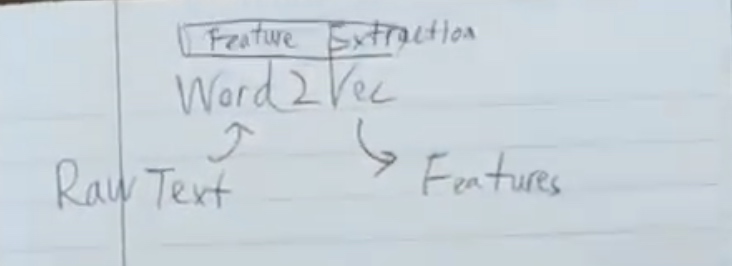 Feature Extraction
Word2Vec
Raw Text
Features